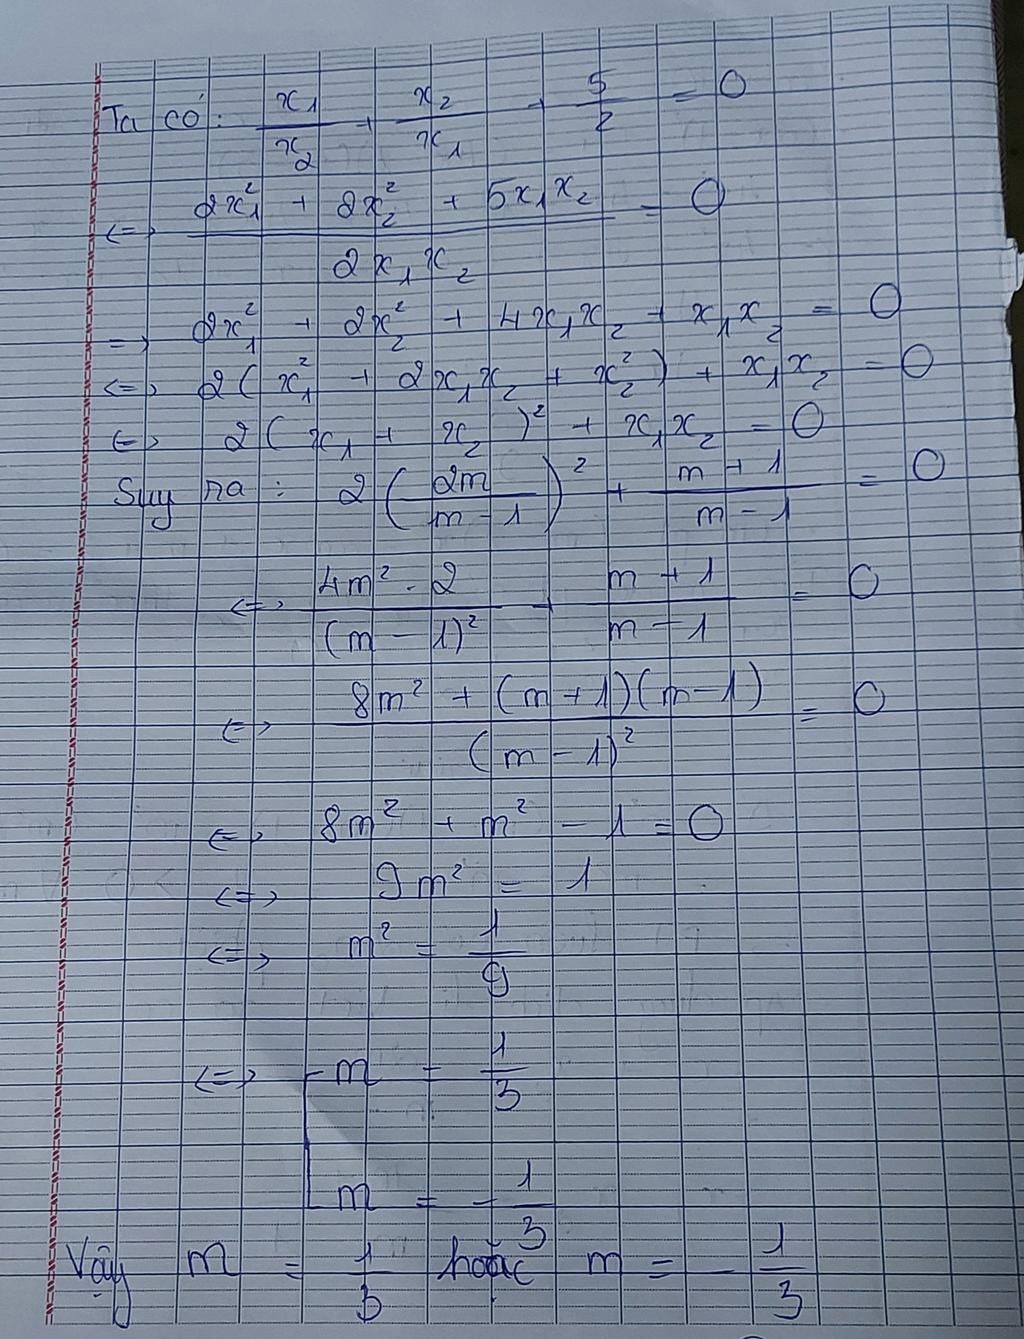 Ta có: x₁/x₂ + x₂/x₁ + 5/2 = 0
<=> (2x₁² + 2x₂² + 5x₁x₂)/(2x₁x₂) = 0
=> 2x₁² + 2x₂² + 4x₁x₂ + x₁x₂ = 0
<=> 2(x₁² + 2x₁x₂ + x₂²) + x₁x₂ = 0
<=> 2(x₁ + x₂)² + x₁x₂ = 0
Suy ra: 2(2m/(m - 1))² + (m + 1)/(m - 1) = 0
<=> (4m² . 2)/(m - 1)² + (m + 1)/(m - 1) = 0
<=> (8m² + (m+1)(m-1))/(m - 1)² = 0
<=> 8m² + m² - 1 = 0
<=> 9m² = 1
<=> m² = 1/9
<=> [ m = 1/3
m = -1/3
Vậy m = 1/3 hoặc m = -1/3